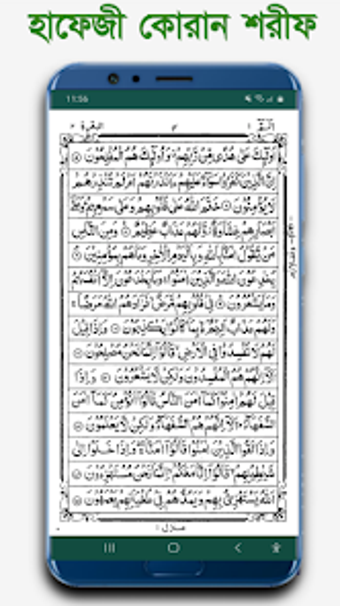 হাফেজী কোরান শরীফ
11:56
البقرة ٢ ٣ الٓمّٓ ١
اُولٰٓئِكَ عَلٰى هُدًى مِّنْ رَّبِّهِمْ وَاُولٰٓئِكَ هُمُ الْمُفْلِحُوْنَ ۝
اِنَّ الَّذِيْنَ كَفَرُوْا سَوَآءٌ عَلَيْهِمْ ءَاَنْذَرْتَهُمْ اَمْ لَمْ تُنْذِرْهُمْ
لَا يُؤْمِنُوْنَ ۝ خَتَمَ اللّٰهُ عَلٰى قُلُوْبِهِمْ وَعَلٰى سَمْعِهِمْ وَعَلٰٓى
اَبْصَارِهِمْ غِشَاوَةٌ وَّلَهُمْ عَذَابٌ عَظِيْمٌ ۝ وَمِنَ النَّاسِ
مَنْ يَّقُوْلُ اٰمَنَّا بِاللّٰهِ وَبِالْيَوْمِ الْاٰخِرِ وَمَا هُمْ بِمُؤْمِنِيْنَ ۝
يُخٰدِعُوْنَ اللّٰهَ وَالَّذِيْنَ اٰمَنُوْا وَمَا يَخْدَعُوْنَ اِلَّآ اَنْفُسَهُمْ
وَمَا يَشْعُرُوْنَ ۝ فِيْ قُلُوْبِهِمْ مَّرَضٌ فَزَادَهُمُ اللّٰهُ مَرَضًا
وَلَهُمْ عَذَابٌ اَلِيْمٌ بِمَا كَانُوْا يَكْذِبُوْنَ ۝ وَاِذَا قِيْلَ
لَهُمْ لَا تُفْسِدُوْا فِى الْاَرْضِ قَالُوْٓا اِنَّمَا نَحْنُ مُصْلِحُوْنَ ۝
اَلَآ اِنَّهُمْ هُمُ الْمُفْسِدُوْنَ وَلٰكِنْ لَّا يَشْعُرُوْنَ ۝ وَاِذَا
قِيْلَ لَهُمْ اٰمِنُوْا كَمَآ اٰمَنَ النَّاسُ قَالُوْٓا اَنُؤْمِنُ كَمَآ اٰمَنَ
السُّفَهَآءُ اَلَآ اِنَّهُمْ هُمُ السُّفَهَآءُ وَلٰكِنْ لَّا يَعْلَمُوْنَ ۝
وَاِذَا لَقُوا الَّذِيْنَ اٰمَنُوْا قَالُوْٓا اٰمَنَّا وَاِذَا خَلَوْا اِلٰى
شَيٰطِيْنِهِمْ قَالُوْٓا اِنَّا مَعَكُمْ اِنَّمَا نَحْنُ مُسْتَهْزِءُوْنَ ۝
اَللّٰهُ يَسْتَهْزِئُ بِهِمْ وَيَمُدُّهُمْ فِيْ طُغْيَانِهِمْ يَعْمَهُوْنَ ۝
منزل ١